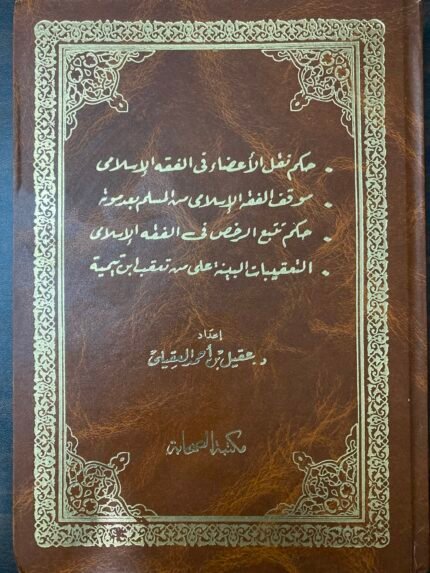 • حكم نقل الأعضاء في الفقه الإسلامي
• موقف الفقه الإسلامي من المسلم بعد موته
• حكم تتبع الرخص في الفقه الإسلامي
• التعقيبات البينة على من تعقب ابن تيمية
إعداد
د. عقيل بن أحمد العقيلي
مكتبة الصحابة